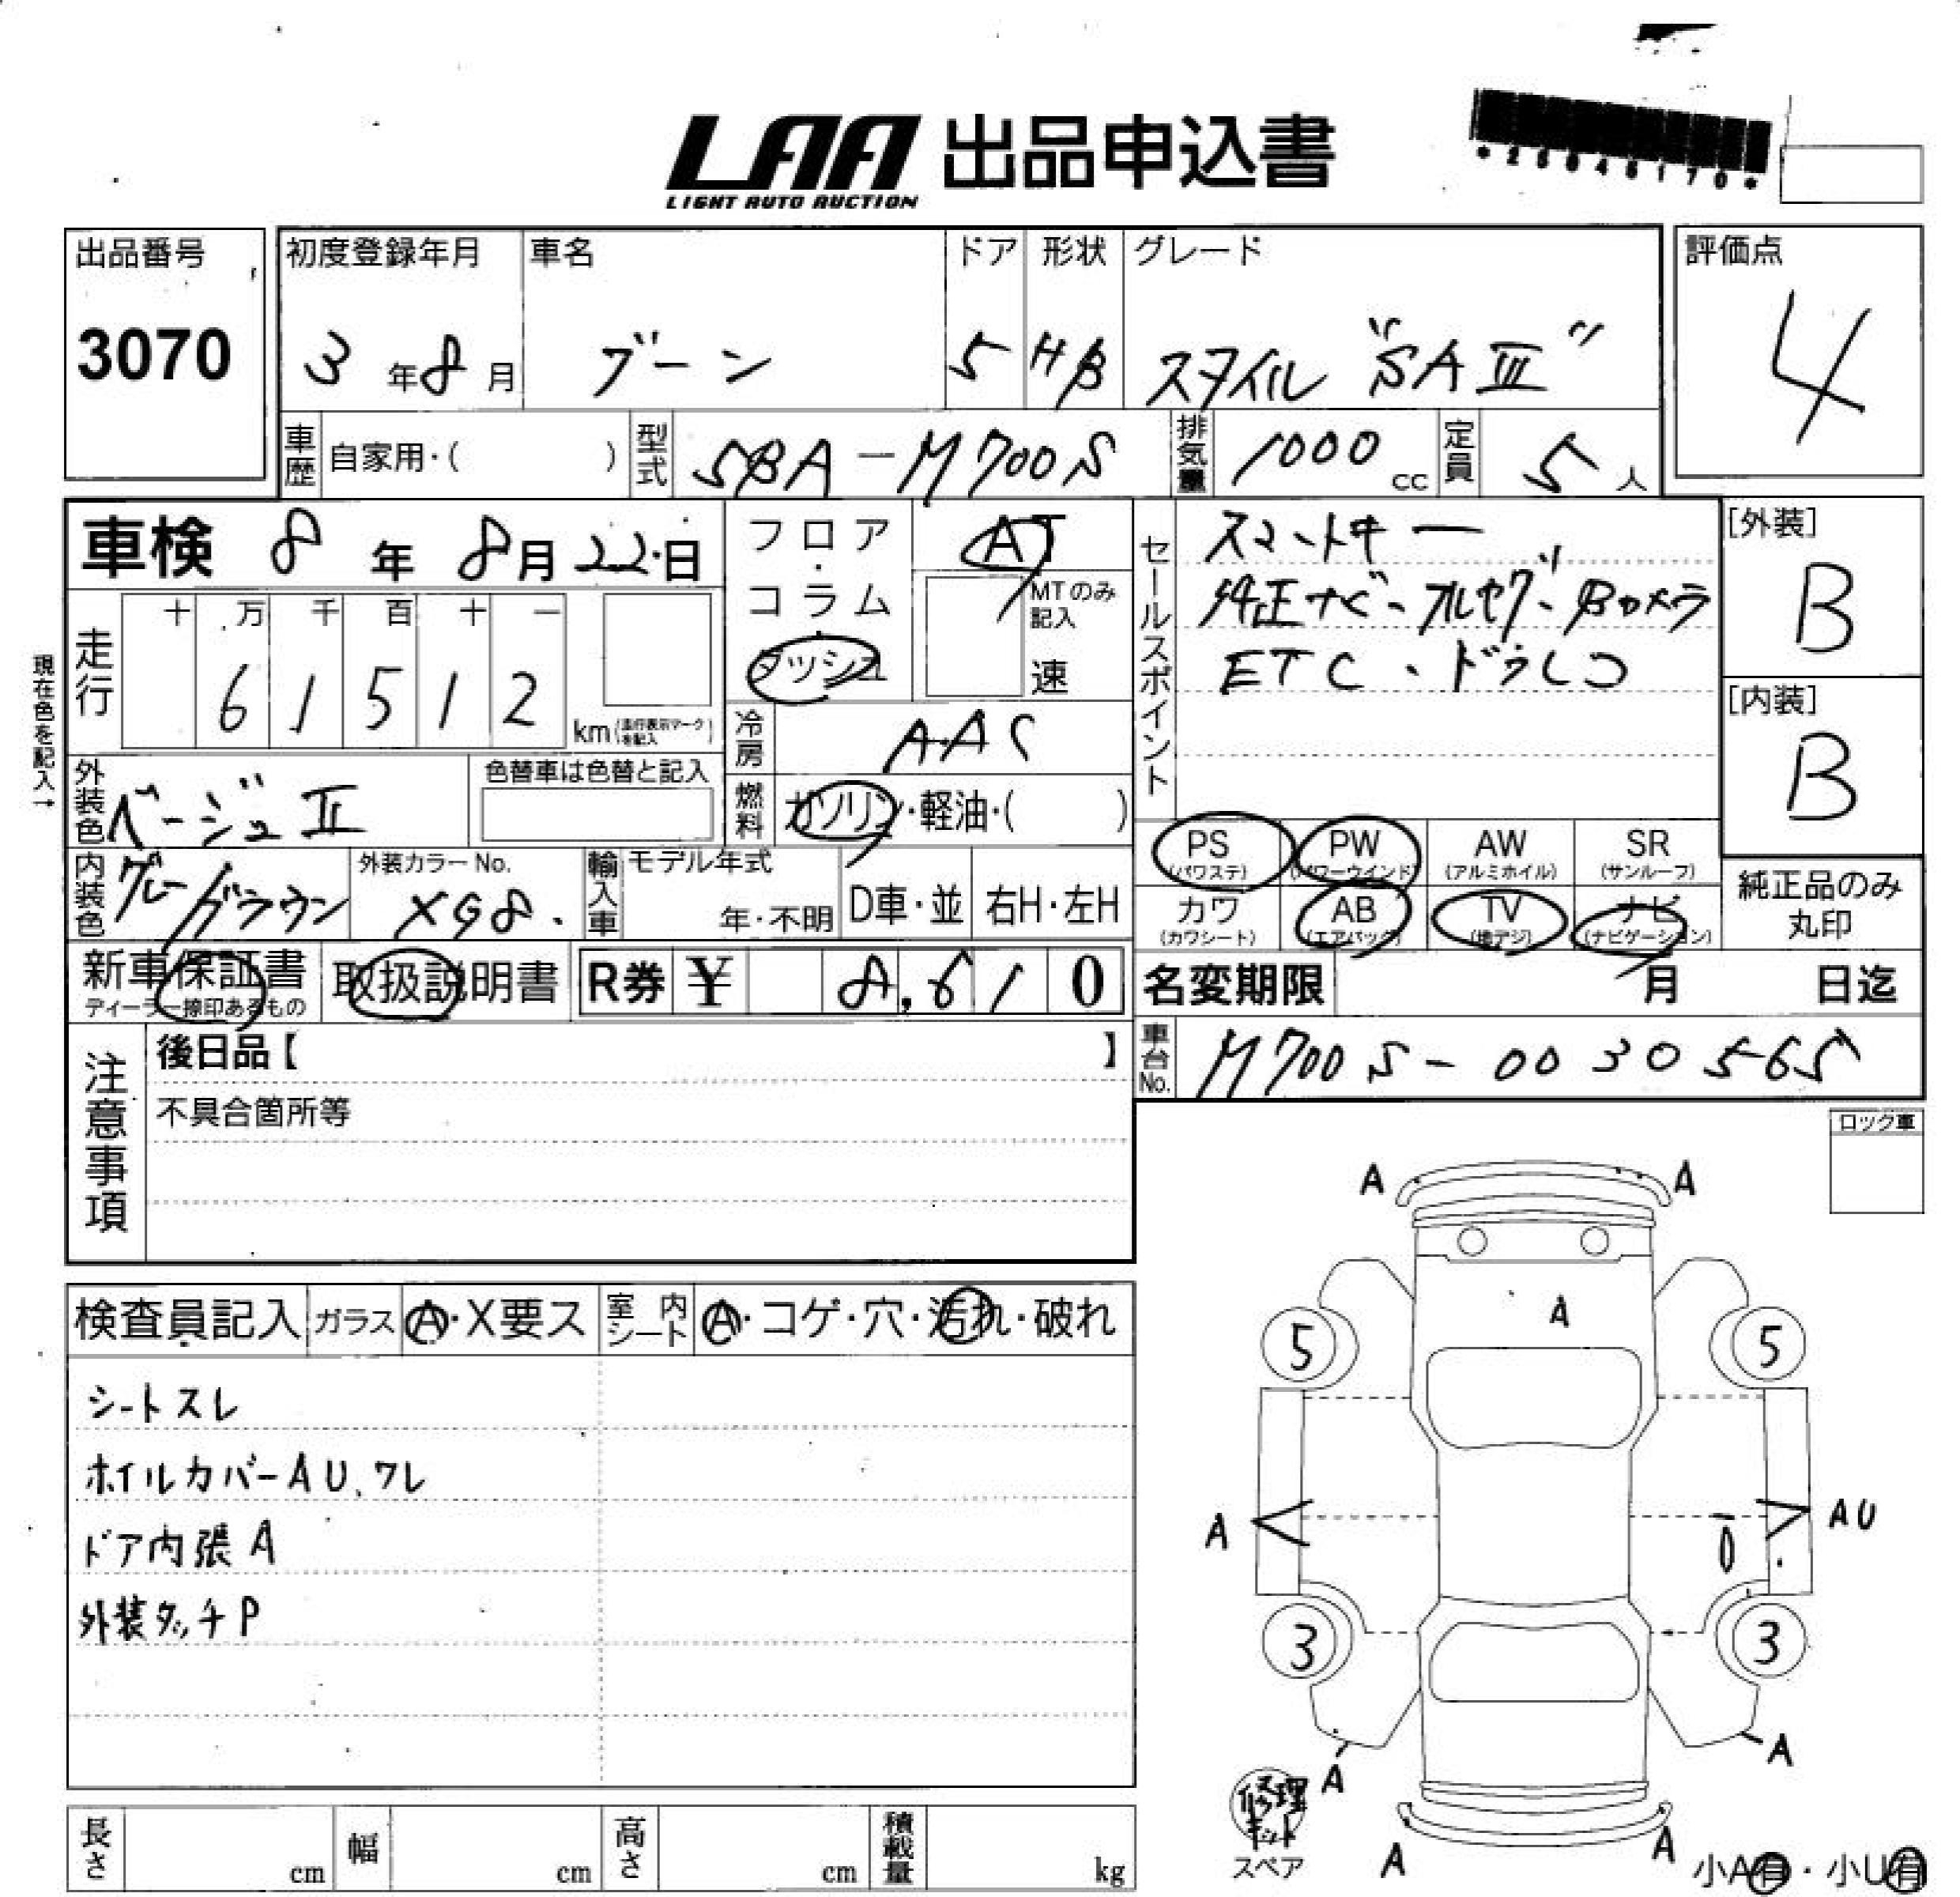 LAA 出品申込書
LIGHT AUTO AUCTION
出品番号 初度登録年月 車名 ドア 形状 グレード 評価点
3070 3年8月 ブーン 5 H/B スタイル "SAⅢ" 4
車歴 自家用・( ) 型式 5BA-M700S 排気量 1000 cc 定員 5人
車検 8年 8月22日 フロア・コラム・ダッシュ AT
MTのみ記入 速
セールスポイント スマートキー
純正ナビ・フルセグ・Bカメラ
ETC・ドラレコ
[外装] B
[内装] B
走行 十 万 千 百 十 一
6 1 5 1 2 km (走行表示マークを記入)
現在色を記入→
冷房 AAC
外装色 ベージュⅡ 色替車は色替と記入
燃料 ガソリン・軽油・( )
内装色 グレー/ブラウン 外装カラーNo. XG8
輸入車 モデル年式 年・不明 D車・並 右H・左H
PS (パワステ) PW (パワーウインド) AW (アルミホイル) SR (サンルーフ)
カワ (カワシート) AB (エアバッグ) TV (地デジ) ナビ (ナビゲーション)
純正品のみ丸印
新車保証書 ディーラー捺印あるもの 取扱説明書 R券 ¥ 8,610
名変期限 月 日迄
車台No. M700S-0030565
注意事項 後日品【 】
不具合箇所等
ロック車
検査員記入 ガラス A・X要ス 室内シート A・コゲ・穴・汚れ・破れ
シートスレ
ホイルカバーAU、ワレ
ドア内張A
外装タッチP
A A
A
5 5
A AU
3 3
A A
修理キット
スペア
A A
小A有・小U有
長さ cm 幅 cm 高さ cm 積載量 kg